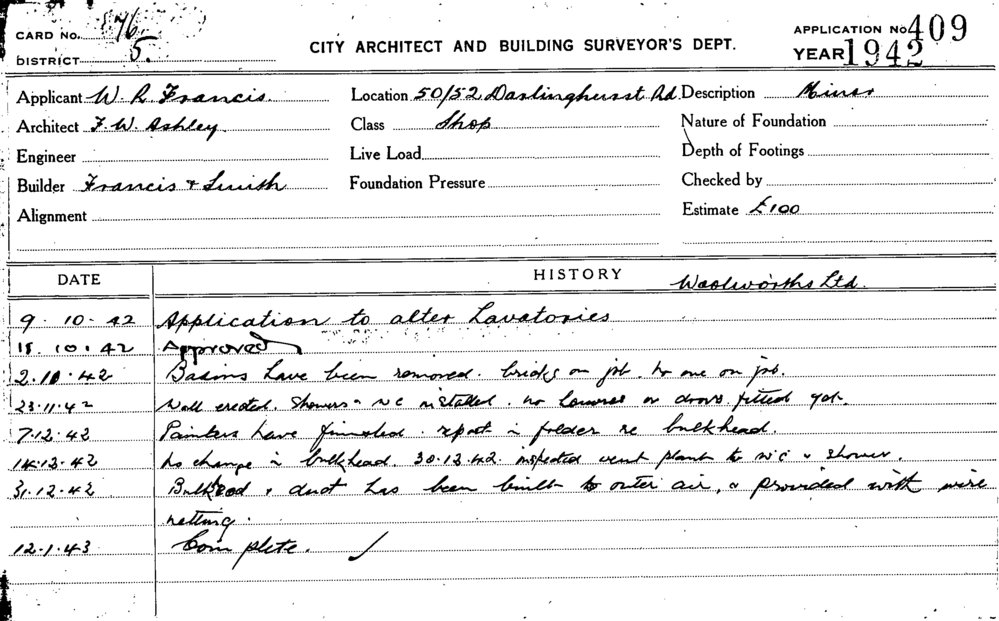 CARD No. 76
DISTRICT 5.
CITY ARCHITECT AND BUILDING SURVEYOR'S DEPT.
APPLICATION No 409
YEAR 1942
Applicant W. R. Francis. Location 50/52 Darlinghurst Rd. Description Minor
Architect F. W. Ashley. Class Shop Nature of Foundation
Engineer Live Load Depth of Footings
Builder Francis & Smith Foundation Pressure Checked by
Alignment Estimate £100
DATE HISTORY Woolworths Ltd.
9. 10. 42 Application to alter Lavatories
10. 42 Approved
42 Basins have been removed. bricks on job. No one on job.
23. 11. 42 Wall erected. Showers & WC installed. no louvres or doors fitted yet.
7. 12. 42 Painters have finished. report in folder re bulkhead.
14. 12. 42 No change in bulkhead. 30. 12. 42. inspected vent plant to WC & shower.
31. 12. 42 Bulkhead & duct has been built to outer air, & provided with wire
netting.
12. 1. 43 Complete.